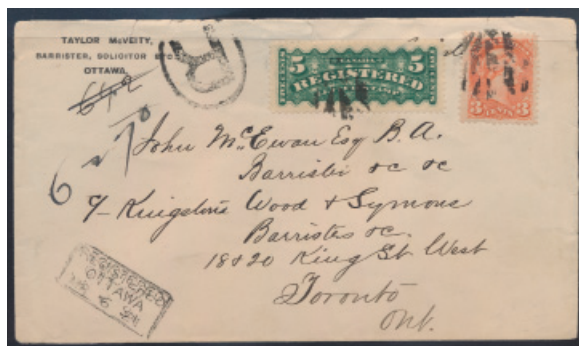 TAYLOR McVEITY,
BARRISTER, SOLICITOR
OTTAWA.
R
5 CANADA 5
REGISTERED
3 CENTS 3
John McEwan Esq B.A.
Barrister &c &c
c/- Kingston's Wood & Symons
Barristers &c.
18 & 20 King St West
Toronto
Ont.
REGISTERED
OTTAWA
6